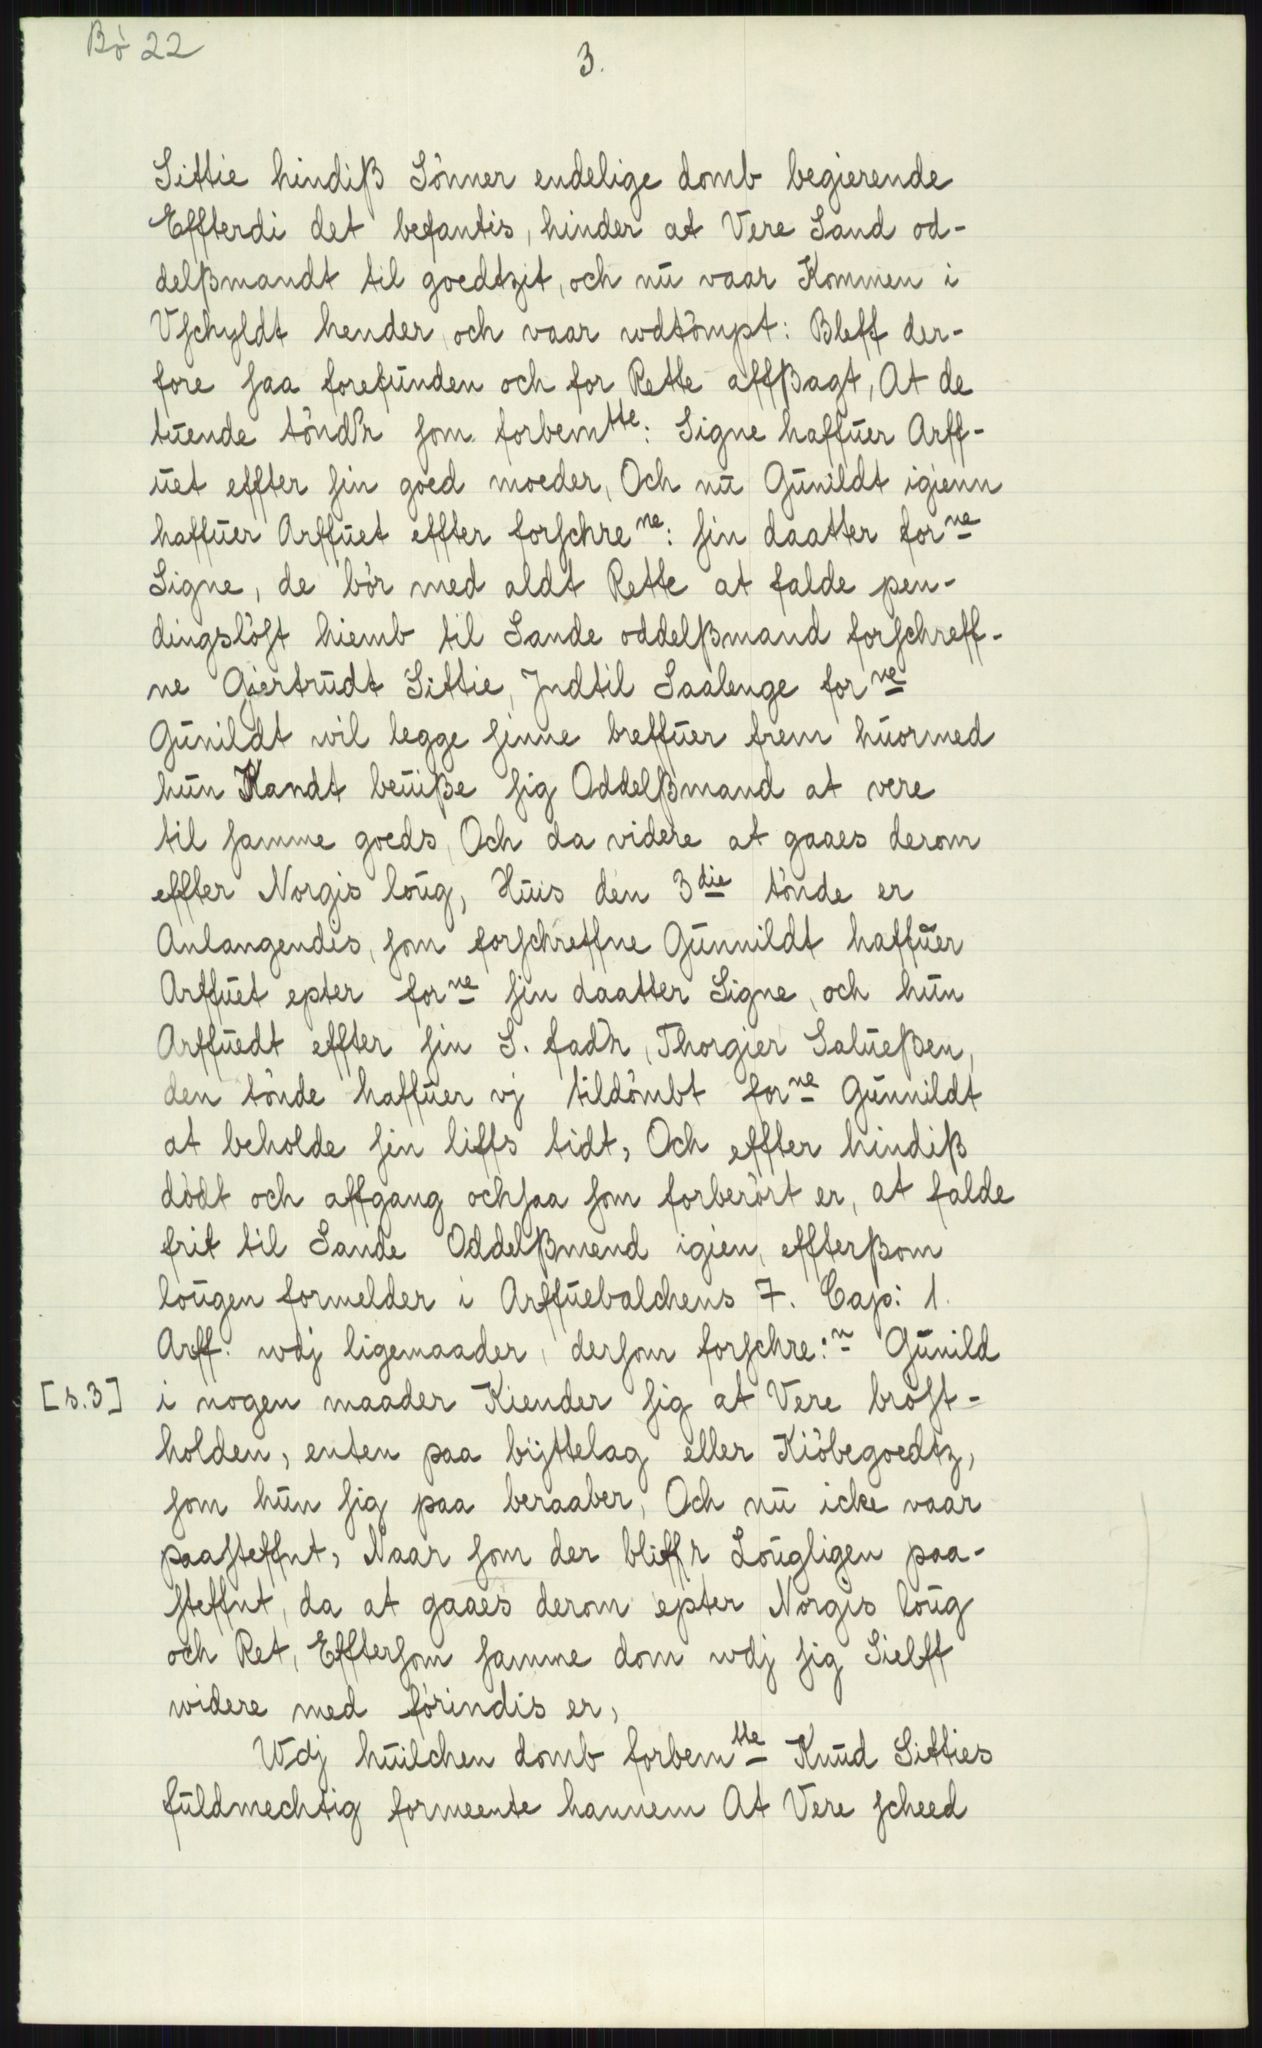 Bö 22
3.
Sittie hindiß Sönner endelige domb begierende
Effterdi det befantis, hinder at Vere Sand od-
delßmandt til goedtzit, och nū vaar Kommen i
Vschyldt hender, och vaar wdtömpt: Bleff der-
fore saa forefūnden och for Rette affßagt, At de
tūende tönd'r som forbemtte: Signe haffūer Arff-
ūet effter sin goed moeder, Och nū Gūnildt igienn
haffūer Arffūet effter forschrene: sin daatter forne
Signe, de bör med aldt Rette at falde pen-
dingslöst hiemb til Sande oddelßmand forschreff-
ne Giertrūdt Sittie, Indtil Saalenge forne
Gūnildt wil legge sinne breffūer frem hūormed
hūn Kandt beūiße sig Oddelßmand at vere
til samme goeds, Och da videre at gaaes derom
effter Norgis loūg, Hūis den 3die tönde er
Anlangendis, som forschreffne Gūnnildt haffūer
Arffūet epter forne sin daatter Signe, och hūn
Arffūedt effter sin S. fad'r, Thorgier Salūeßen,
den tönde haffūer vj tildömbt forne Gūnnildt
at beholde sin liffs tidt, Och effter hindiß
dödt och affgang ochsaa som forberört er, at falde
frit til Sande Oddelßmend igien, effterßom
loūgen formelder i Arffūebalchens 7. Cap: 1.
Arff: wdj ligemaader, dersom forschre:n Gūnild
[s.3] i nogen maader Kiender sig at Vere bröst-
holden, enten paa bÿttelag eller Kiöbegoedtz,
som hūn sig paa beraaber, Och nū icke vaar
paasteffnt, Naar som der bliff'r Loūgligen paa-
steffnt, da at gaaes derom epter Norgis loūg
och Ret, Effterson samme dom wdj sig Sielff
widere med förindis er,
Wdj hūilchen domb forbemtte Knūd Sitties
fūldmechtig formeente hannem At Vere scheed